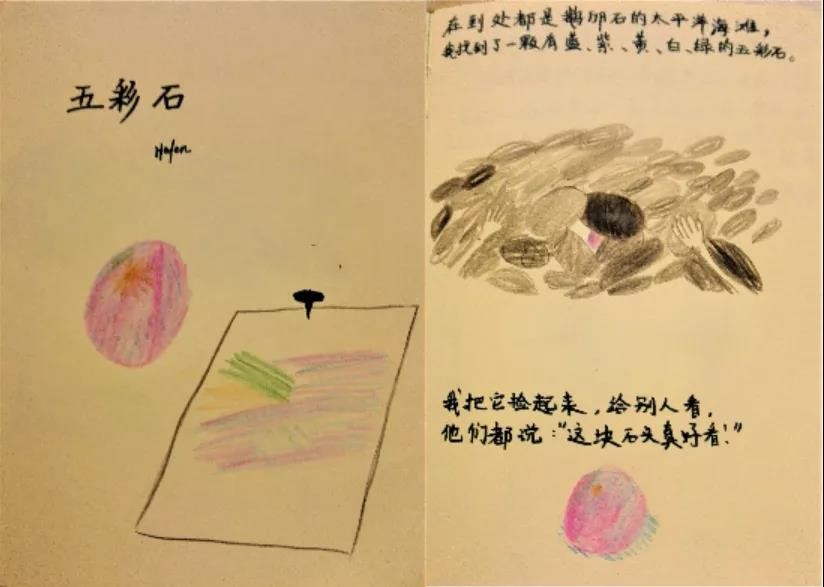 五彩石
Helen
在到处都是鹅卵石的太平洋海滩，
我找到了一颗有蓝、紫、黄、白、绿的五彩石。
我把它捡起来，给别人看，
他们都说："这块石头真好看！"